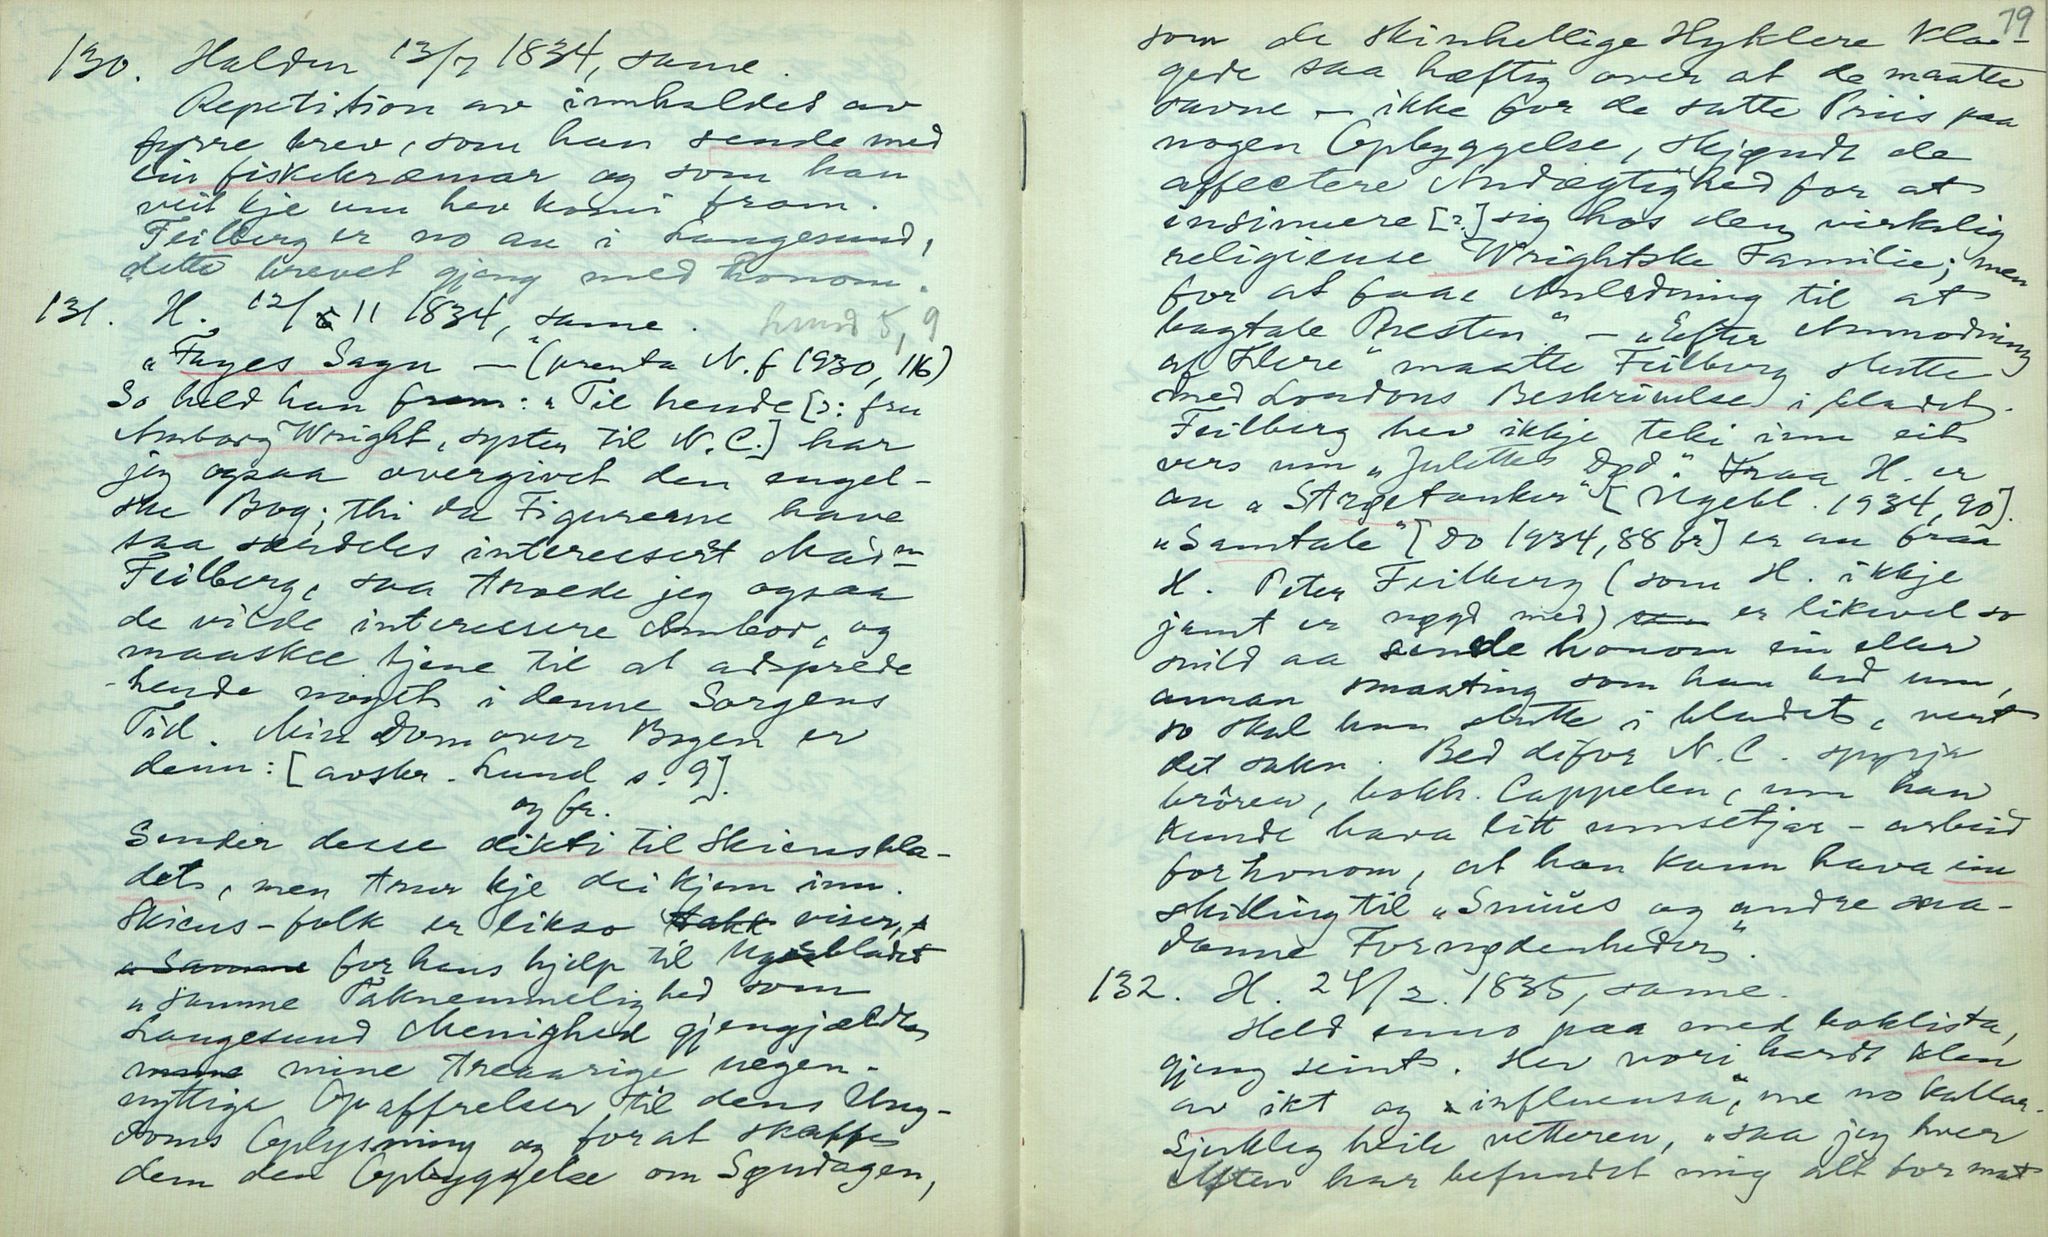 130. Halden 13/7 1834, same.
Repetition av innhaldet av
fyrre brev, som han sende med
ein fiskekræmar og som han
veit kje um hev komi fram.
Feilberg er no au i Langesund,
dette brevet gjeng med honom.
131. H. 12/11 1834, same. Lund 5, 9
"Fayes Sagn — " (prenta N. f 1930, 116)
So held han fram: "Til hende [ɔ: fru
Amborg Wright, syster til N.C.] har
jeg ogsaa overgivet den engel-
ske Bog; thi da Figurerne have
saa særdeles interessert Mad m
Feilberg, saa troede jeg ogsaa
de vilde interessere Ambor, og
maaskee tjene til at adsprede
hende noget i denne Sorgens
Tid. Min Dom over Bogen er
denn: [avskr. Lund s. 9].
og fr.
Sender desse dikti til Skiensbla-
det, men trur kje dei kjem inn.
Skiens-folk er likso viser,
for hans hjelp til Ugebladet
"samme Taknemmelighed som
Langesund Menighed gjengjældte
mine treaarige uegen-
nyttige Opoffrelser til dens Ung-
doms Oplysning og for at skaffe
dem den Opbyggelse om Søndagen,
19
som de skinhellige Hyklere kla-
gede saa hæftig over at de maatte
savne — ikke for de satte Priis paa
nogen Opbyggelse, skjøndt de
affectere Andægtighed for at
insinuere [?] sig hos den virkelig
religieuse Wrightske Familie; men
for at faae Anledning til at
bagtale Presten" — "Efter Anmodning
af Flere" maatte Feilberg slutte
med Londons Beskrivelse i bladet.
Feilberg hev ikkje teki inn eit
vers um "Julettes Død". Fraa H. er
au "Strøetanker" [Ugebl. 1934, 90].
"Samtale" [Do 1934, 88 fr] er au fraa
H. Peter Feilberg (som H. ikkje
jamt er nøgd med) er likevel so
snild aa sende honom ein eller
annan smaating som han bed um,
so skal han slutte i bladet, vert
det sakn. Bed difor N.C. spyrja
brören, bokh. Cappelen, um han
kunde hava litt umsetjar-arbeid
for honom, at han kann hava ein
skilling til "Snuus og andre saa-
danne Fornødenheder".
132. H. 24/2. 1835, same.
Held enno paa med boklista,
gjeng seint. Hev vori hardt klen
av ikt og "influensa", me no kallar.
Sjukleg heile vetteren, "saa jeg hver
Aften har befundet mig alt for mat